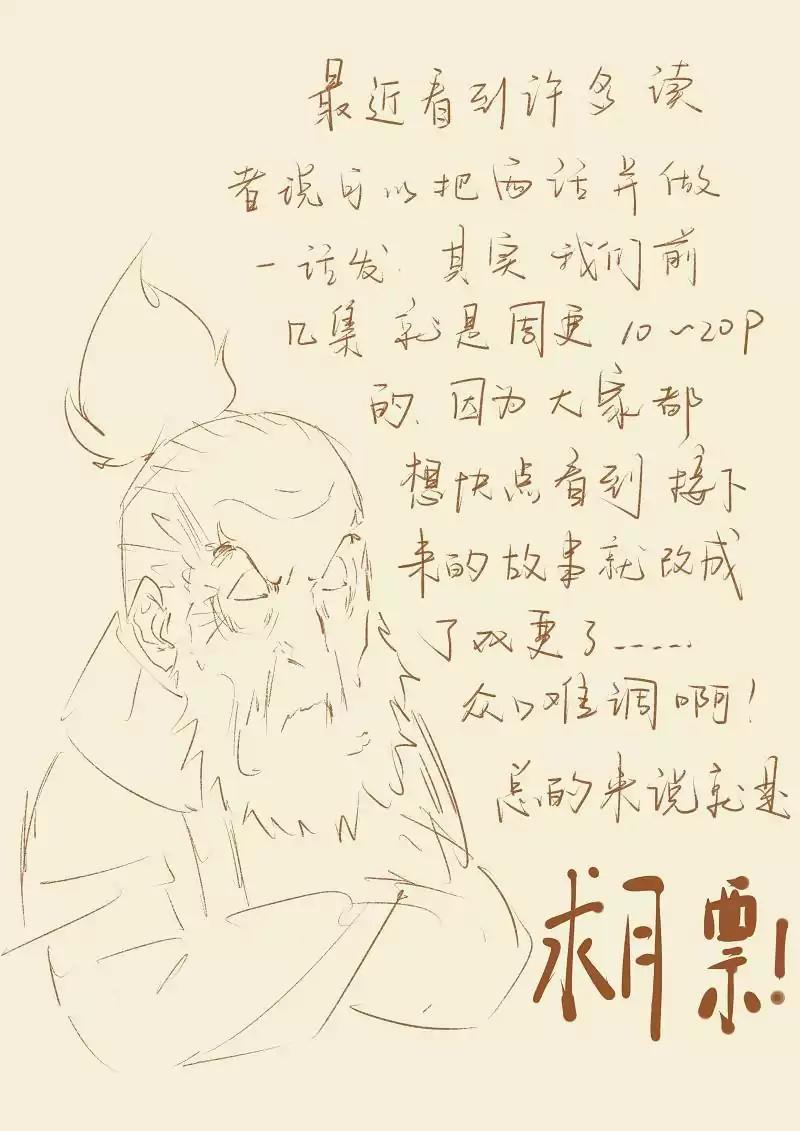 最近看到许多读
者说可以把两话并做
一话发.其实我们前
几集就是周更10~20P
的.因为大家都
想快点看到接下
来的故事就改成
了双更了......
众口难调啊!
总的来说就是
求月票!